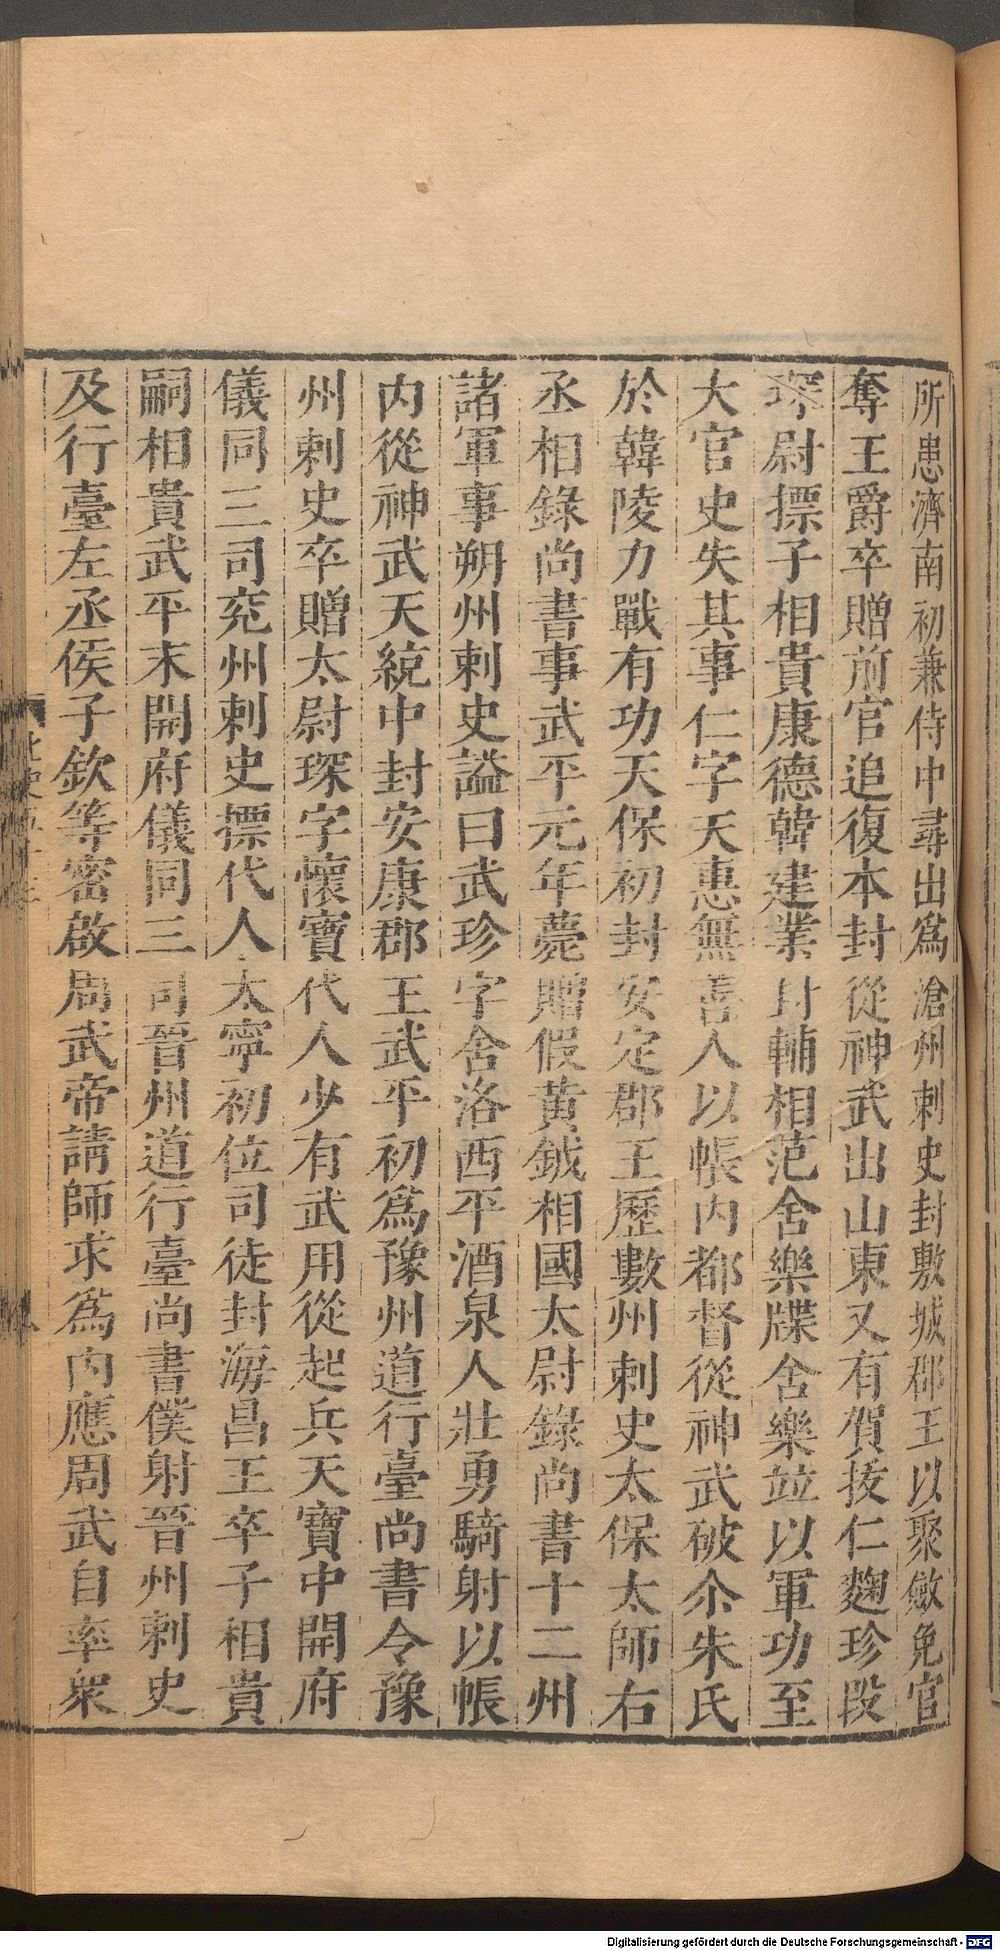 所患濟南初兼侍中尋出爲滄州刺史封敷城郡王以聚斂免官
奪王爵卒贈前官追復本封從神武出山東又有賀拔仁麴珍段
琛尉摽子相貴康德韓建業封輔相范舍樂牒舍樂竝以軍功至
大官史失其事仁字天惠無善人以帳内都督從神武破尒朱氏
於韓陵力戰有功天保初封安定郡王歷數州刺史太保太師右
丞相錄尚書事武平元年薨贈假黃鉞相國太尉錄尚書十二州
諸軍事朔州刺史謚曰武珍字舍洛西平酒泉人壯勇騎射以帳
内從神武天統中封安康郡王武平初爲豫州道行臺尚書令豫
州刺史卒贈太尉琛字懷寶代人少有武用從起兵天寶中開府
儀同三司兖州刺史摽代人太寧初位司徒封海昌王卒子相貴
嗣相貴武平末開府儀同三司晉州道行臺尚書僕射晉州刺史
及行臺左丞侯子欽等密啟周武帝請師求爲内應周武自率衆
Digitalisierung gefördert durch die Deutsche Forschungsgemeinschaft - DFG